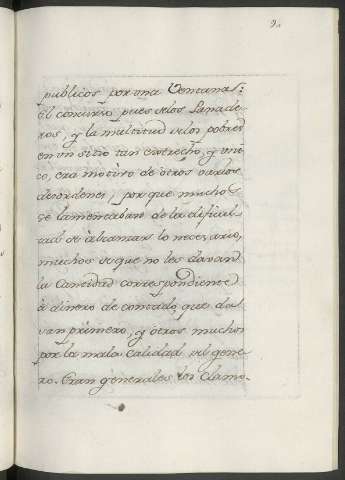 9.
publicos por una Ventana:
el concurso pues de los Panade-
ros, y la multitud de los pobres
en un sitio tan estrecho, y uni-
co, era motivo de otros varios
desordenes, porque muchos
se lamentaban de la dificul-
tad de alcanzar lo necesario,
muchos de que no les davan
la Cantidad correspondiente
à dinero de contado, que da-
van primero, y otros muchos
por la mala calidad del gene-
ro. Eran generales los clamo-